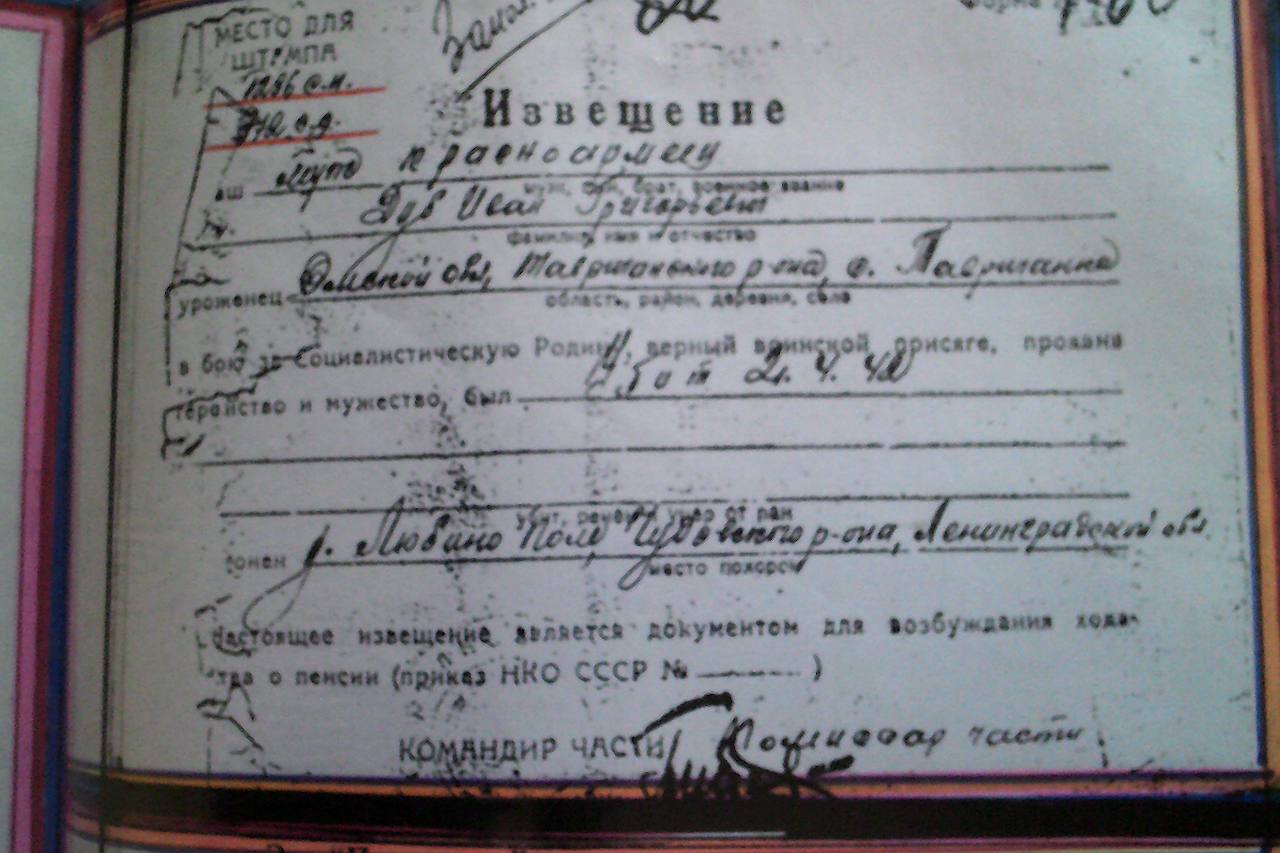 МЕСТО ДЛЯ
ШТАМПА
1236 с.п.
372 с.д.
Извещение
аш муж красноармеец
муж, сын, брат, военное звание
Дуб Иван Григорьевич
фамилия, имя и отчество
уроженец Омской обл, Таврического р-она, с.
область, район, деревня, село
в бою за Социалистическую Родину, верный воинской присяге, проявив
геройство и мужество, был Убит 21. 4. 42
убит, ранен, умер от ран
онен д. Любино Поле Чудовского р-она, Ленинградской обл.
место похорон
Настоящее извещение является документом для возбуждания хода-
тва о пенсии (приказ НКО СССР № )
КОМАНДИР ЧАСТИ Комиссар части